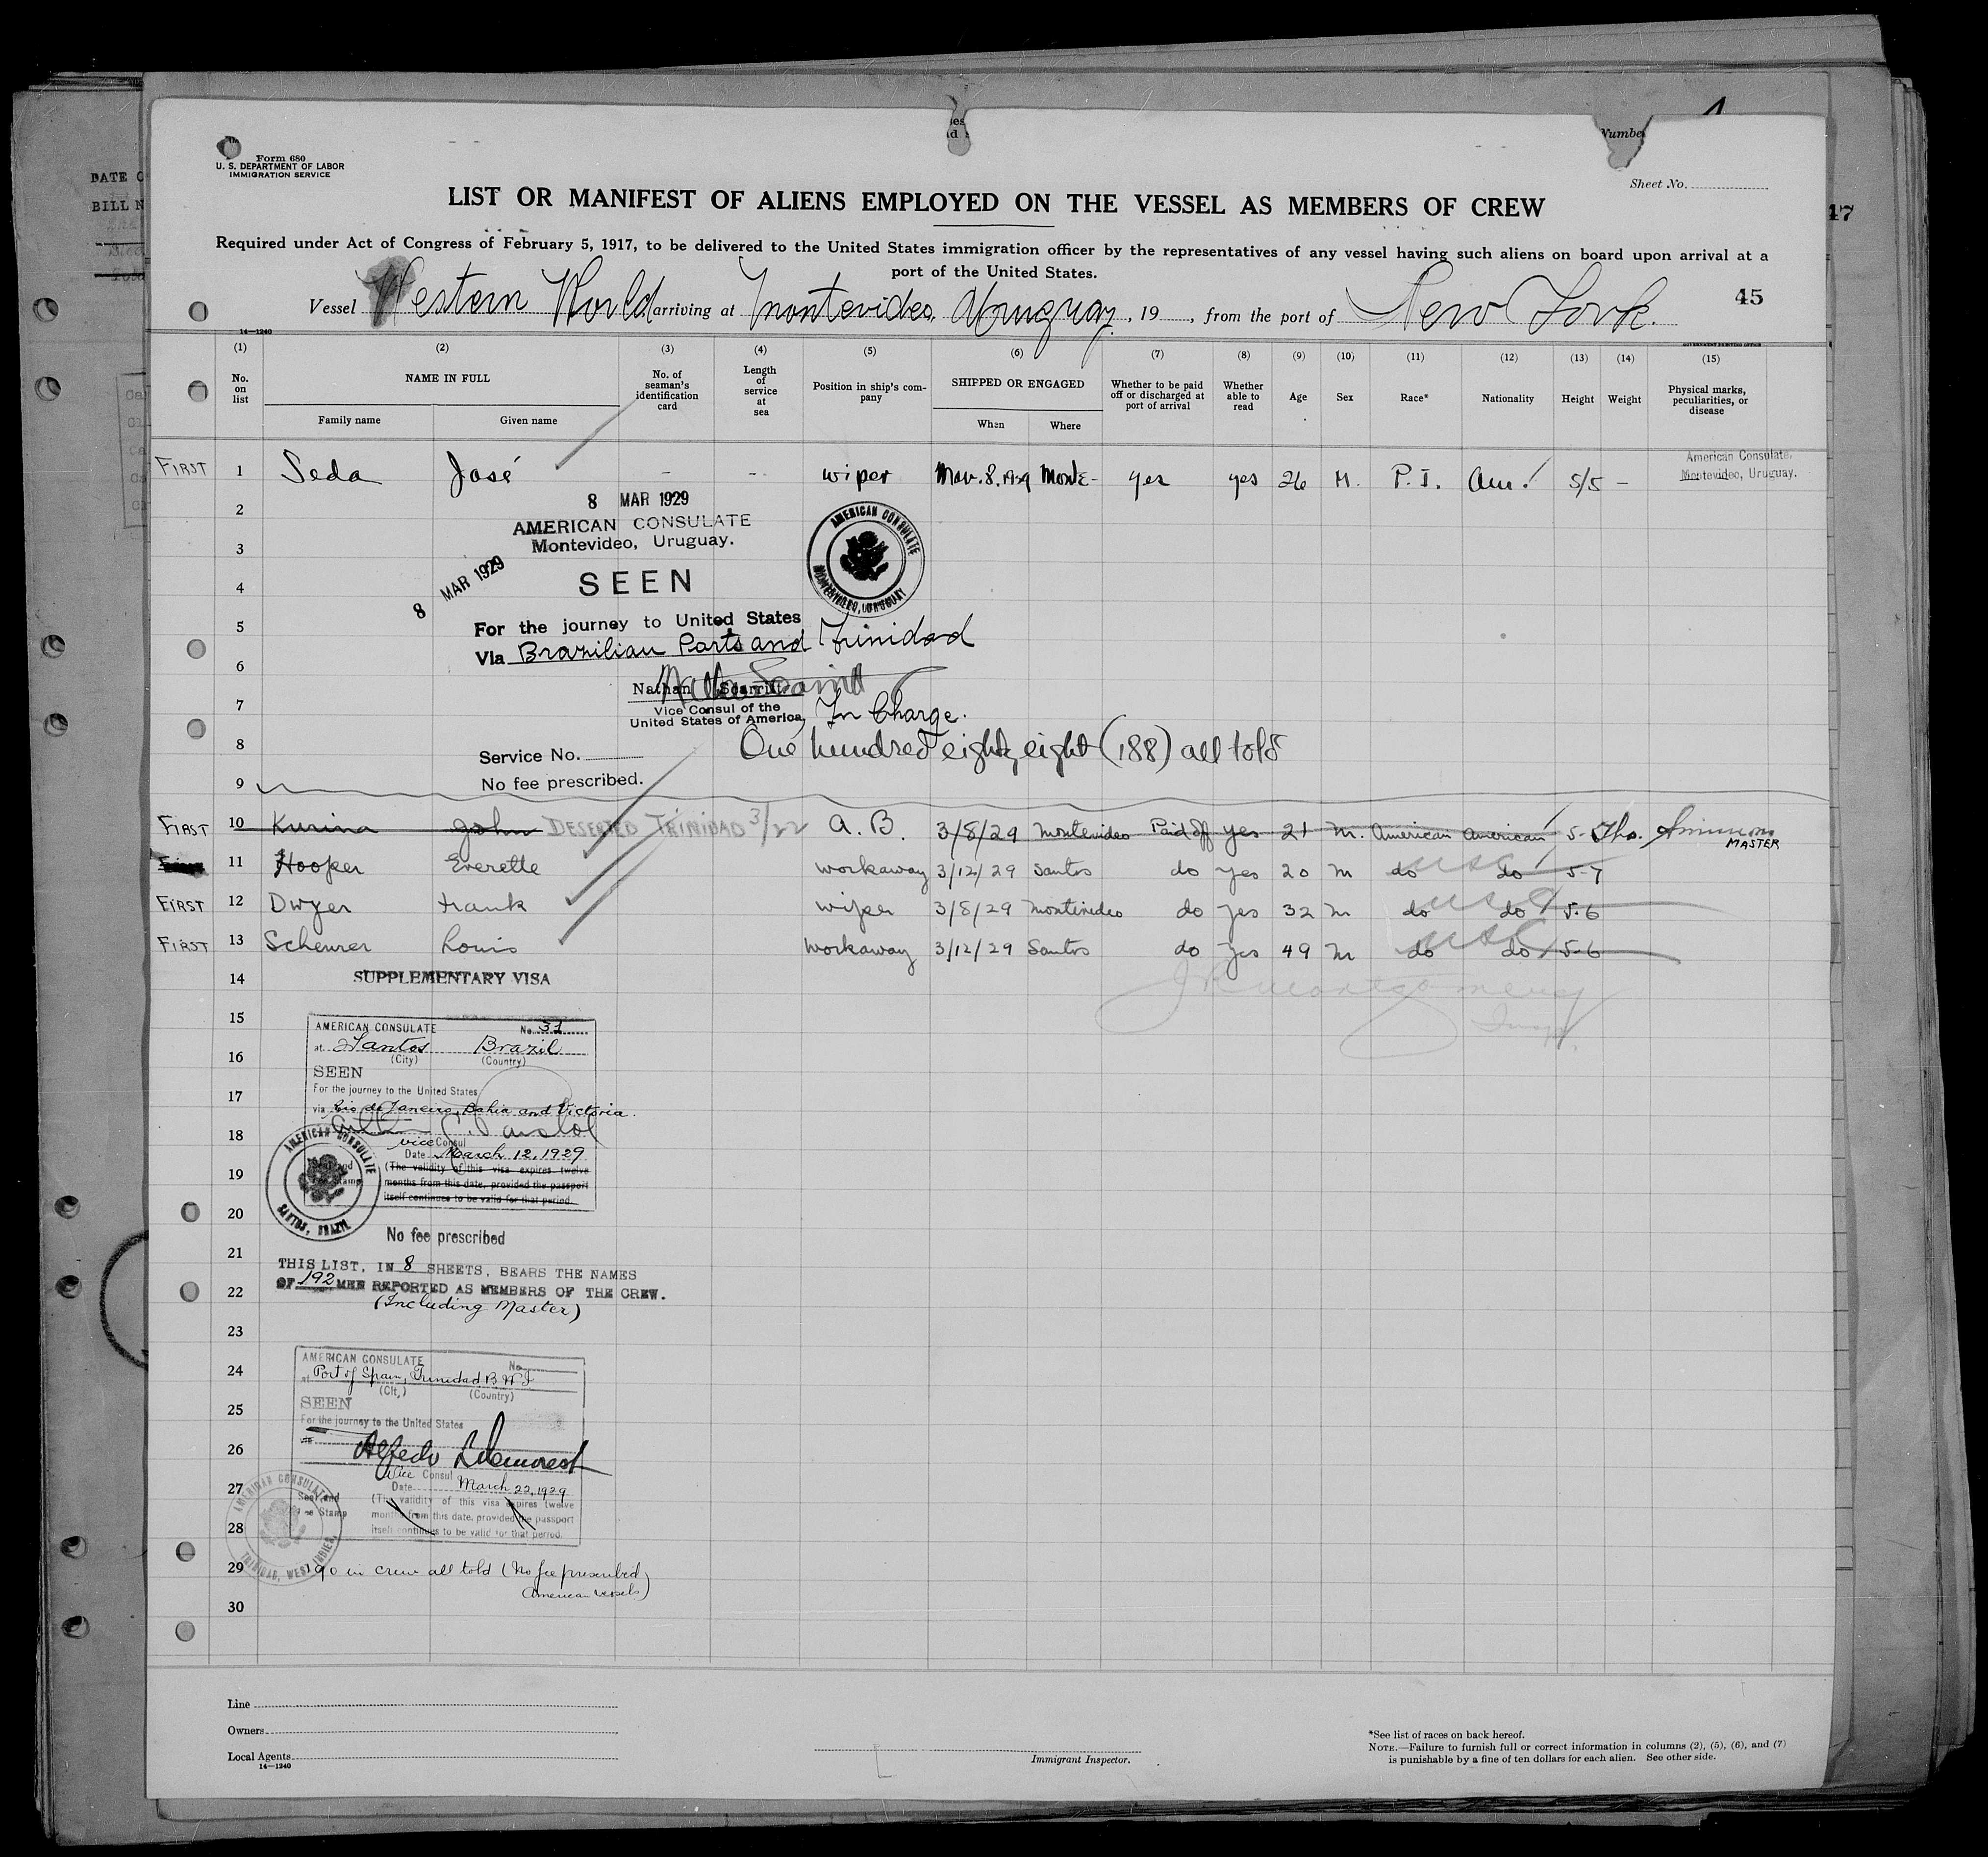 Form 680
U. S. DEPARTMENT OF LABOR
IMMIGRATION SERVICE
Numbe
Sheet No.
LIST OR MANIFEST OF ALIENS EMPLOYED ON THE VESSEL AS MEMBERS OF CREW
Required under Act of Congress of February 5, 1917, to be delivered to the United States immigration officer by the representatives of any vessel having such aliens on board upon arrival at a
port of the United States.
Vessel Western World, arriving at Montevideo, Uruguay, 19 , from the port of New York.
45
47
DATE O
BILL N
14—1240
(1) (2) (3) (4) (5) (6) (7) (8) (9) (10) (11) (12) (13) (14) (15)
No. on list
NAME IN FULL
Family name
Given name
No. of seaman's identification card
Length of service at sea
Position in ship's company
SHIPPED OR ENGAGED
When
Where
Whether to be paid off or discharged at port of arrival
Whether able to read
Age
Sex
Race*
Nationality
Height
Weight
Physical marks, peculiarities, or disease
FIRST 1 Seda José - - wiper Mar. 8. 1929 Monte- yes yes 26 M. P. I. Am. 5/5 -
American Consulate,
Montevideo, Uruguay.
2
8 MAR 1929
AMERICAN CONSULATE
Montevideo, Uruguay.
3
8 MAR 1929
SEEN
4
AMERICAN CONSULATE
MONTEVIDEO, URUGUAY
5
For the journey to United States
Via Brazilian Ports and Trinidad
6
Nathan Scarritt
7
Vice Consul of the
United States of America, In Charge.
8
One hundred eighty eight (188) all told
Service No.
9
No fee prescribed.
FIRST 10 Kurina John DESERTED TRINIDAD 3/22 A. B. 3/8/29 Montevideo Paid off yes 21 m. American American 5- Tho. Simmons
MASTER
11 Hooper Everette workaway 3/12/29 Santos do yes 20 m do do 5-7
FIRST 12 Dwyer Frank wiper 3/8/29 Montevideo do yes 32 m do do 5-6
FIRST 13 Scheurer Louis workaway 3/12/29 Santos do yes 49 m do do 5-6
14 SUPPLEMENTARY VISA
J R Montgomery
Insp.
15
AMERICAN CONSULATE No. 31
at Santos Brazil
16
(City) (Country)
SEEN
For the journey to the United States
17
via Rio de Janeiro, Bahia and Victoria.
18
vice Consul
Date March 12, 1929
19
(The validity of this visa expires twelve
months from this date, provided the passport
itself continues to be valid for that period.
AMERICAN CONSULATE
SANTOS, BRAZIL
20
No fee prescribed
21
THIS LIST, IN 8 SHEETS, BEARS THE NAMES
22
OF 192 MEN REPORTED AS MEMBERS OF THE CREW.
(Including Master)
23
24
AMERICAN CONSULATE No.
at Port of Spain, Trinidad B.W.I
(City) (Country)
25
SEEN
For the journey to the United States
26
Alfredo L. Demorest
Vice Consul
27
Date March 22, 1929
Seal and
Fee Stamp
(The validity of this visa expires twelve
months from this date, provided the passport
itself continues to be valid for that period.
28
AMERICAN CONSULATE
TRINIDAD, WEST INDIES
29
190 in crew all told (No fee prescribed
American vessels)
30
Line
Owners
Local Agents
14—1240
Immigrant Inspector.
*See list of races on back hereof.
NOTE.—Failure to furnish full or correct information in columns (2), (5), (6), and (7)
is punishable by a fine of ten dollars for each alien. See other side.